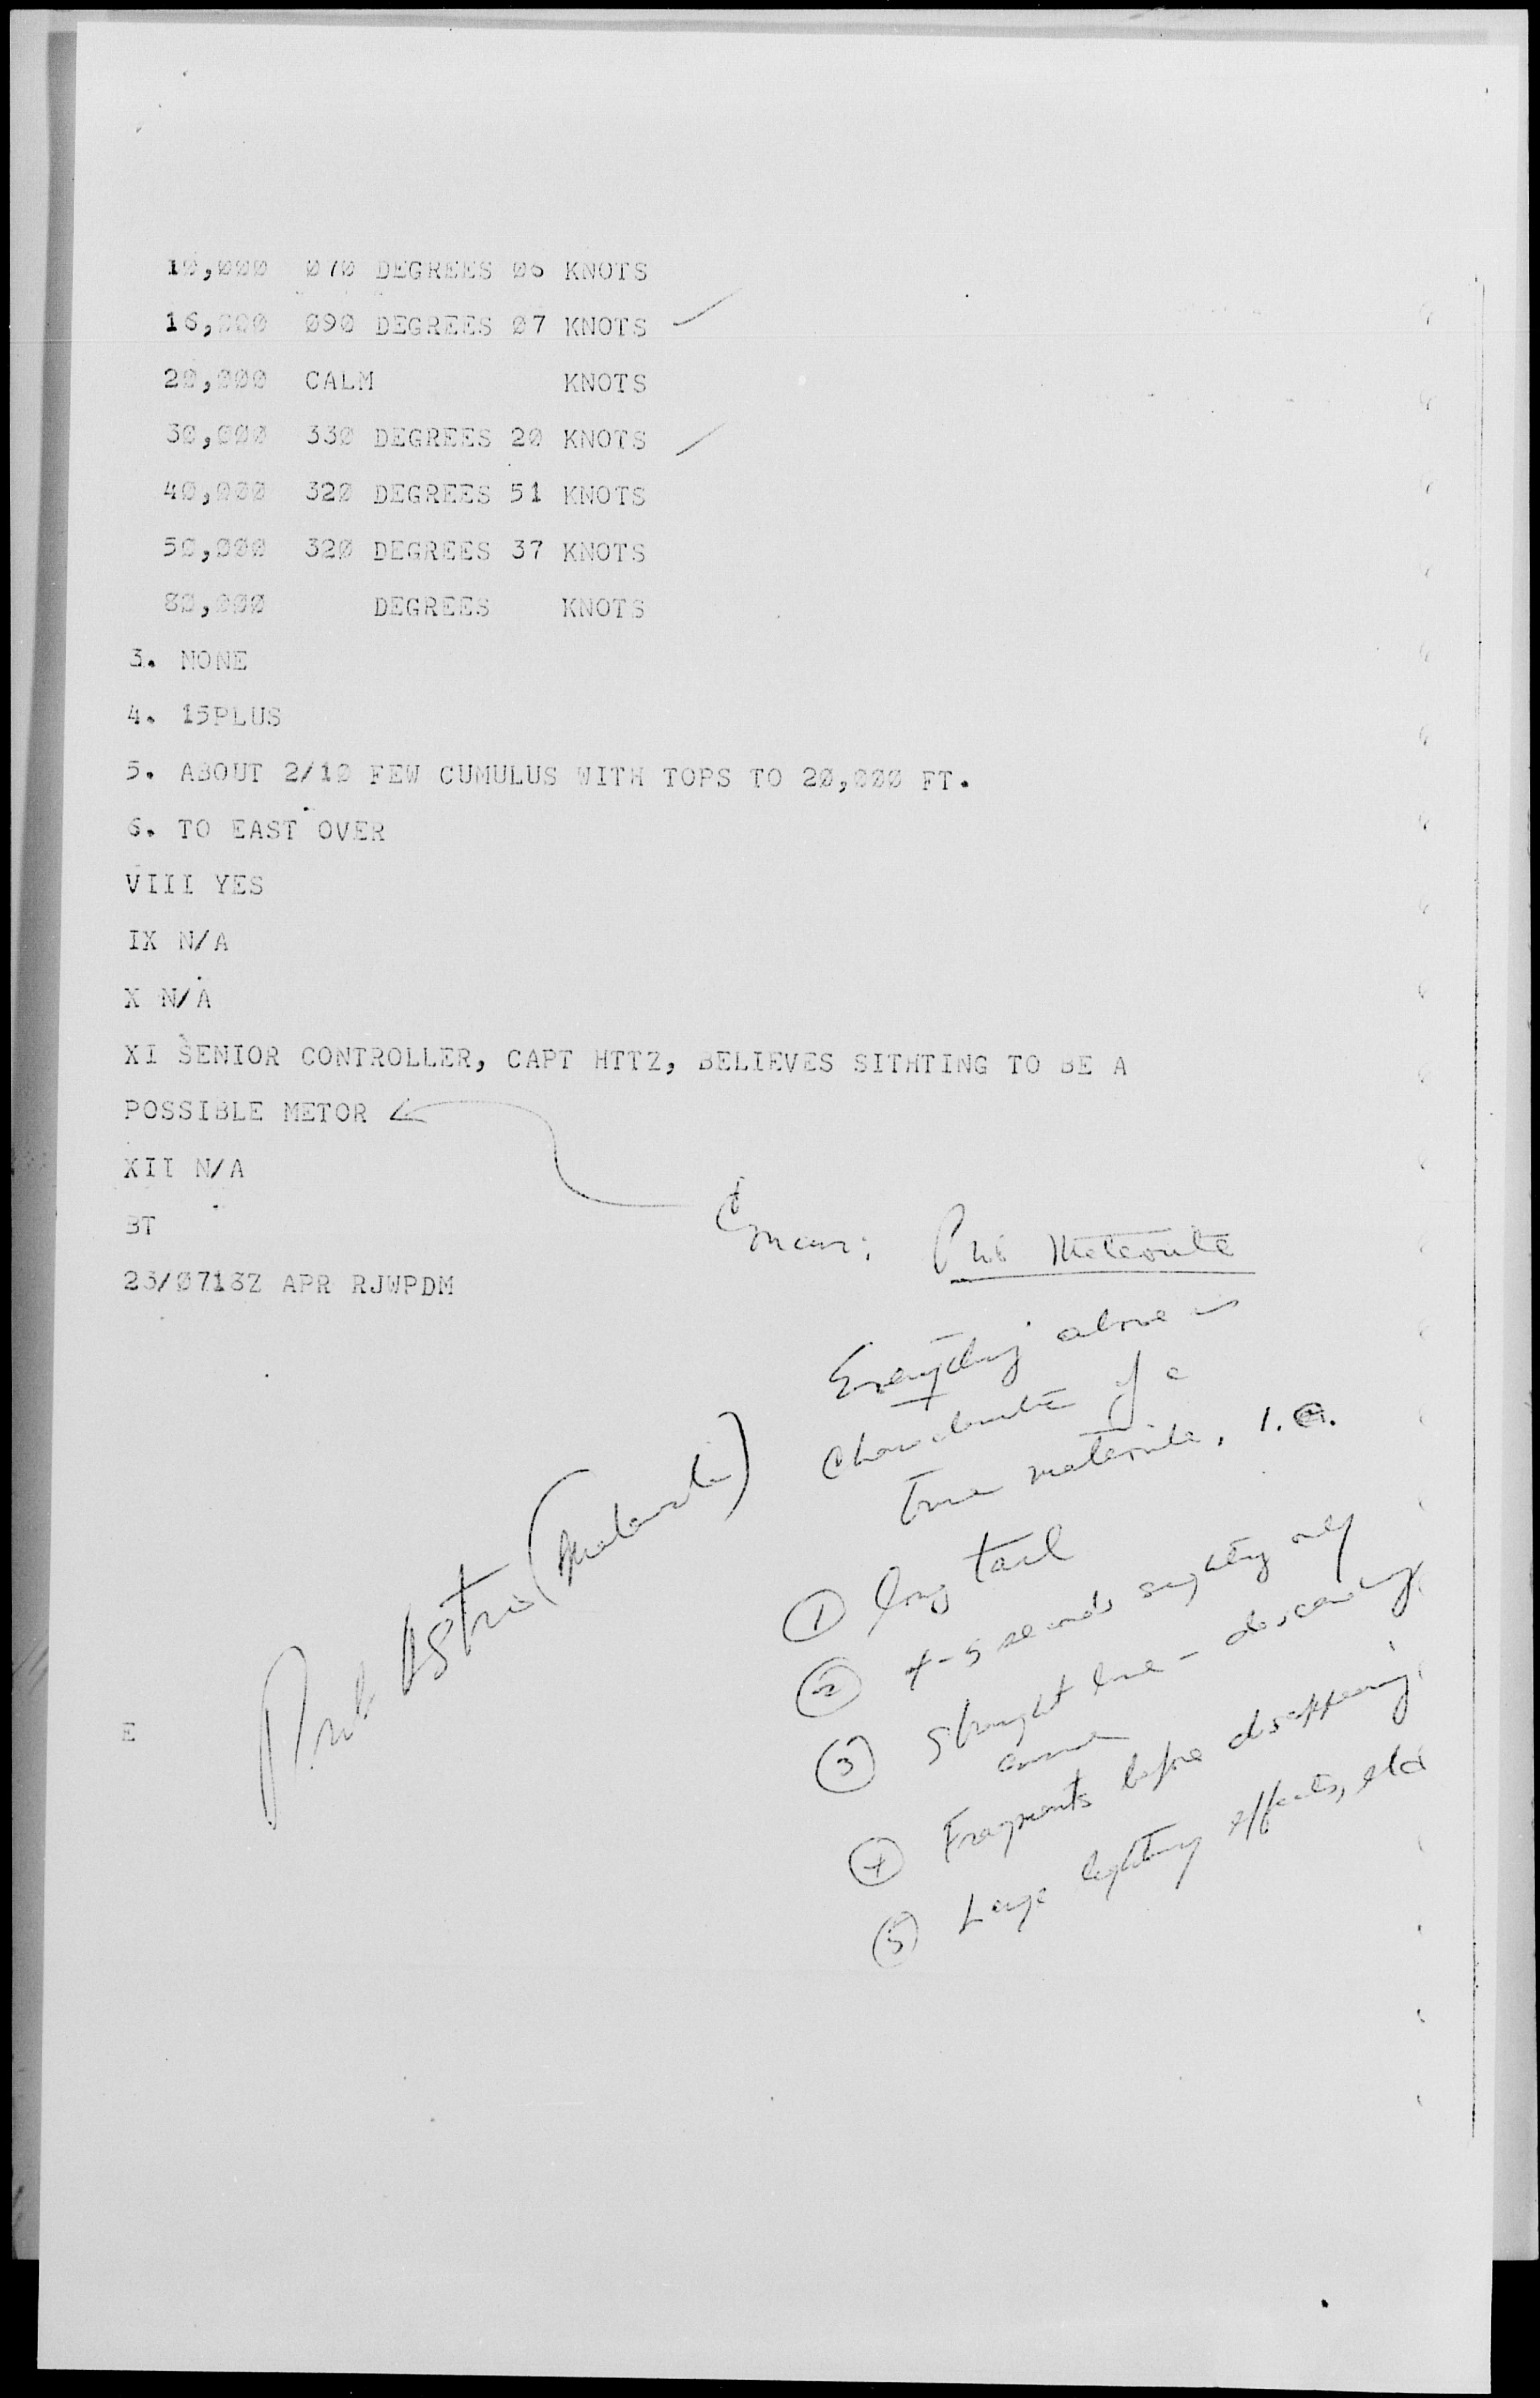 10,000 070 DEGREES 06 KNOTS
16,000 090 DEGREES 07 KNOTS
20,000 CALM KNOTS
30,000 330 DEGREES 20 KNOTS
40,000 320 DEGREES 51 KNOTS
50,000 320 DEGREES 37 KNOTS
80,000 DEGREES KNOTS
3. NONE
4. 15PLUS
5. ABOUT 2/10 FEW CUMULUS WITH TOPS TO 20,000 FT.
6. TO EAST OVER
VIII YES
IX N/A
X N/A
XI SENIOR CONTROLLER, CAPT HTTZ, BELIEVES SITHTING TO BE A
POSSIBLE METOR
XII N/A
BT
23/0713Z APR RJWPDM
Concur: Prob Meteorite
Everything above is
characteristic of a
true meteorite, i.e.
① long tail
② 4-5 seconds sighting only
③ Straight line - descending
④ Fragments before disappearing
⑤ Large lighting effects, etc
Prob Astro (Meteorite)
E